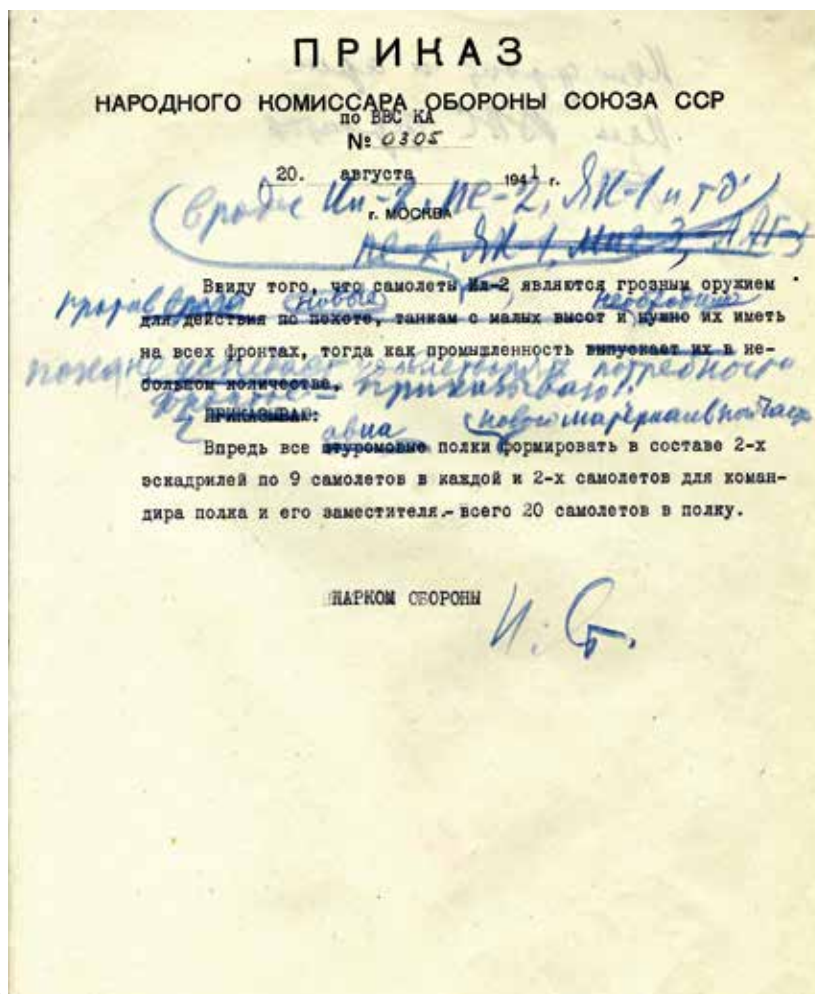 ПРИКАЗ
НАРОДНОГО КОМИССАРА ОБОРОНЫ СОЮЗА ССР
по ВВС КА
№ 0305
20. августа 1941 г.
(вроде Ил-2, Пе-2, ЯК-1 и т д)
г. МОСКВА
пе-2, ЯК-1, миг-3, ЛАГГ-3
Ввиду того, что самолеты Ил-2 являются грозным оружием
против врага новые необходимо
для действия по пехоте, танкам с малых высот и нужно их иметь
на всех фронтах, тогда как промышленность выпускает их в не-
пока не успевает потребности
большом количестве,
фронтов – приказываю:
ПРИКАЗЫВАЮ:
авиа новой материальной части
Впредь все штурмовые полки формировать в составе 2-х
эскадрилей по 9 самолетов в каждой и 2-х самолетов для коман-
дира полка и его заместителя.- всего 20 самолетов в полку.
НАРКОМ ОБОРОНЫ
И. Ст.